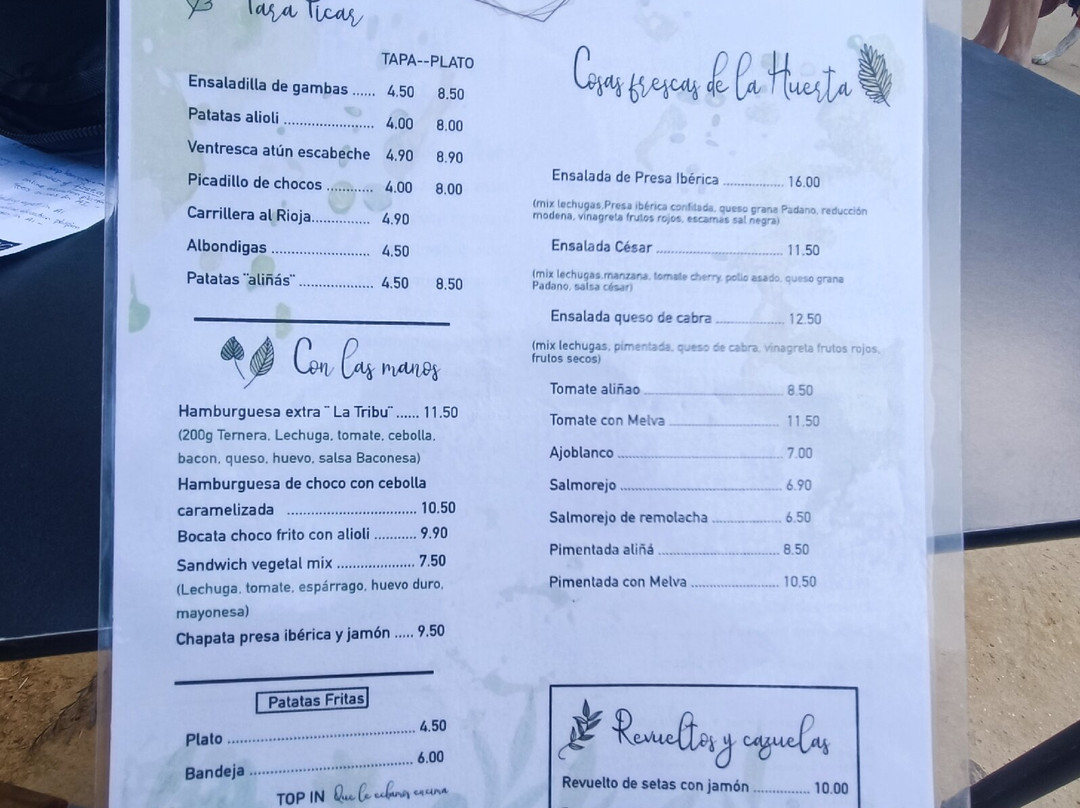 Para Picar
TAPA--PLATO
Ensaladilla de gambas ...... 4.50 8.50
Patatas alioli ...................... 4.00 8.00
Ventresca atún escabeche 4.90 8.90
Picadillo de chocos ........... 4.00 8.00
Carrillera al Rioja.............. 4.90
Albondigas ........................ 4.50
Patatas ¨aliñás¨.................. 4.50 8.50
Con las manos
Hamburguesa extra ¨ La Tribu¨ ...... 11.50
(200g Ternera, Lechuga, tomate, cebolla,
bacon, queso, huevo, salsa Baconesa)
Hamburguesa de choco con cebolla
caramelizada ................................ 10.50
Bocata choco frito con alioli .......... 9.90
Sandwich vegetal mix ................... 7.50
(Lechuga, tomate, espárrago, huevo duro,
mayonesa)
Chapata presa ibérica y jamón ..... 9.50
Patatas Fritas
Plato ............................................. 4.50
Bandeja ........................................ 6.00
TOP IN Que le echamos encima
Cosas frescas de la Huerta
Ensalada de Presa Ibérica ............... 16.00
(mix lechugas,Presa ibérica confitada, queso grana Padano, reducción
modena, vinagreta frutos rojos, escamas sal negra)
Ensalada César ................................ 11.50
(mix lechugas,manzana, tomate cherry, pollo asado, queso grana
Padano, salsa césar)
Ensalada queso de cabra ................. 12.50
(mix lechugas, pimentada, queso de cabra, vinagreta frutos rojos,
frutos secos)
Tomate aliñao .................................. 8.50
Tomate con Melva ........................... 11.50
Ajoblanco ......................................... 7.00
Salmorejo ......................................... 6.90
Salmorejo de remolacha .................. 6.50
Pimentada aliñá ............................... 8.50
Pimentada con Melva ...................... 10.50
Revueltos y cazuelas
Revuelto de setas con jamón ............... 10.00